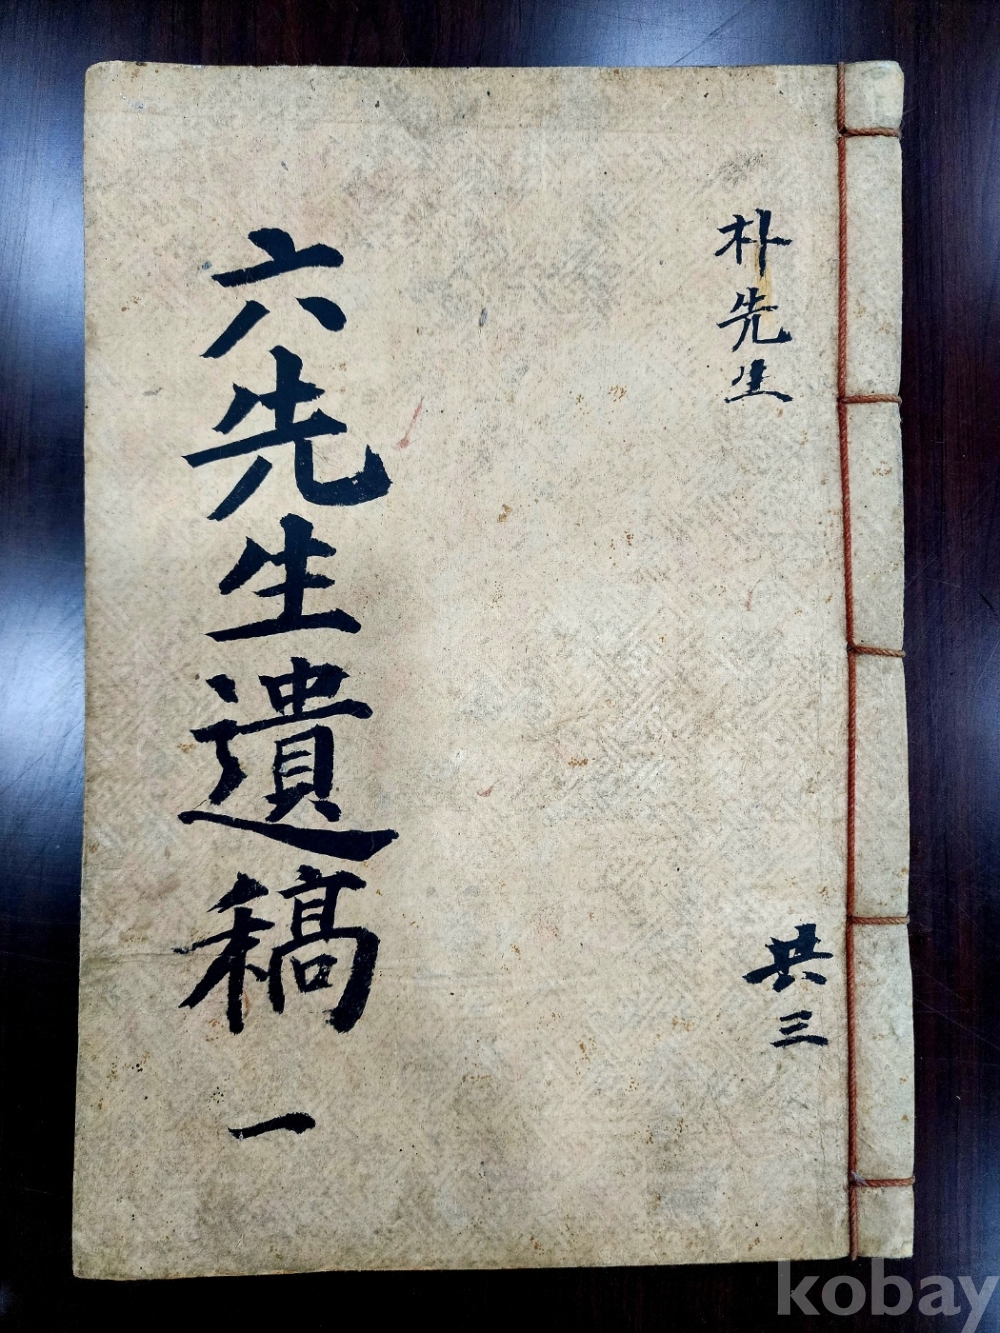 朴先生
共三
六先生遺稿 一
kobay